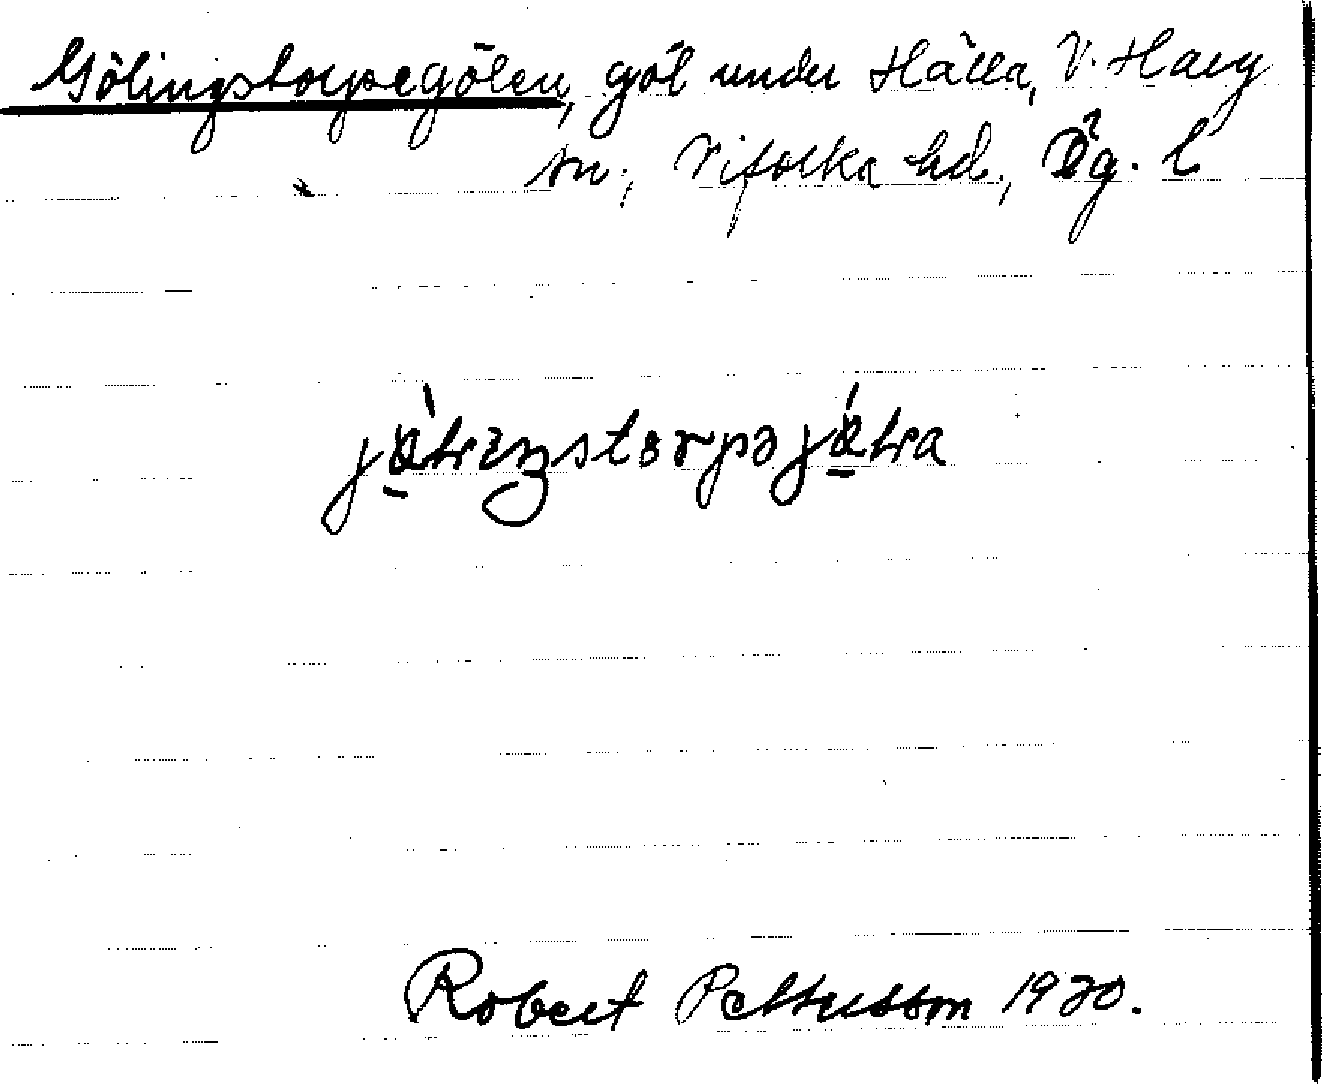 Gölingstorpegölen, göl under Hälla, V. Harg
sn., Vifolka hd., Ög. l
Robert Pettersson 1920.